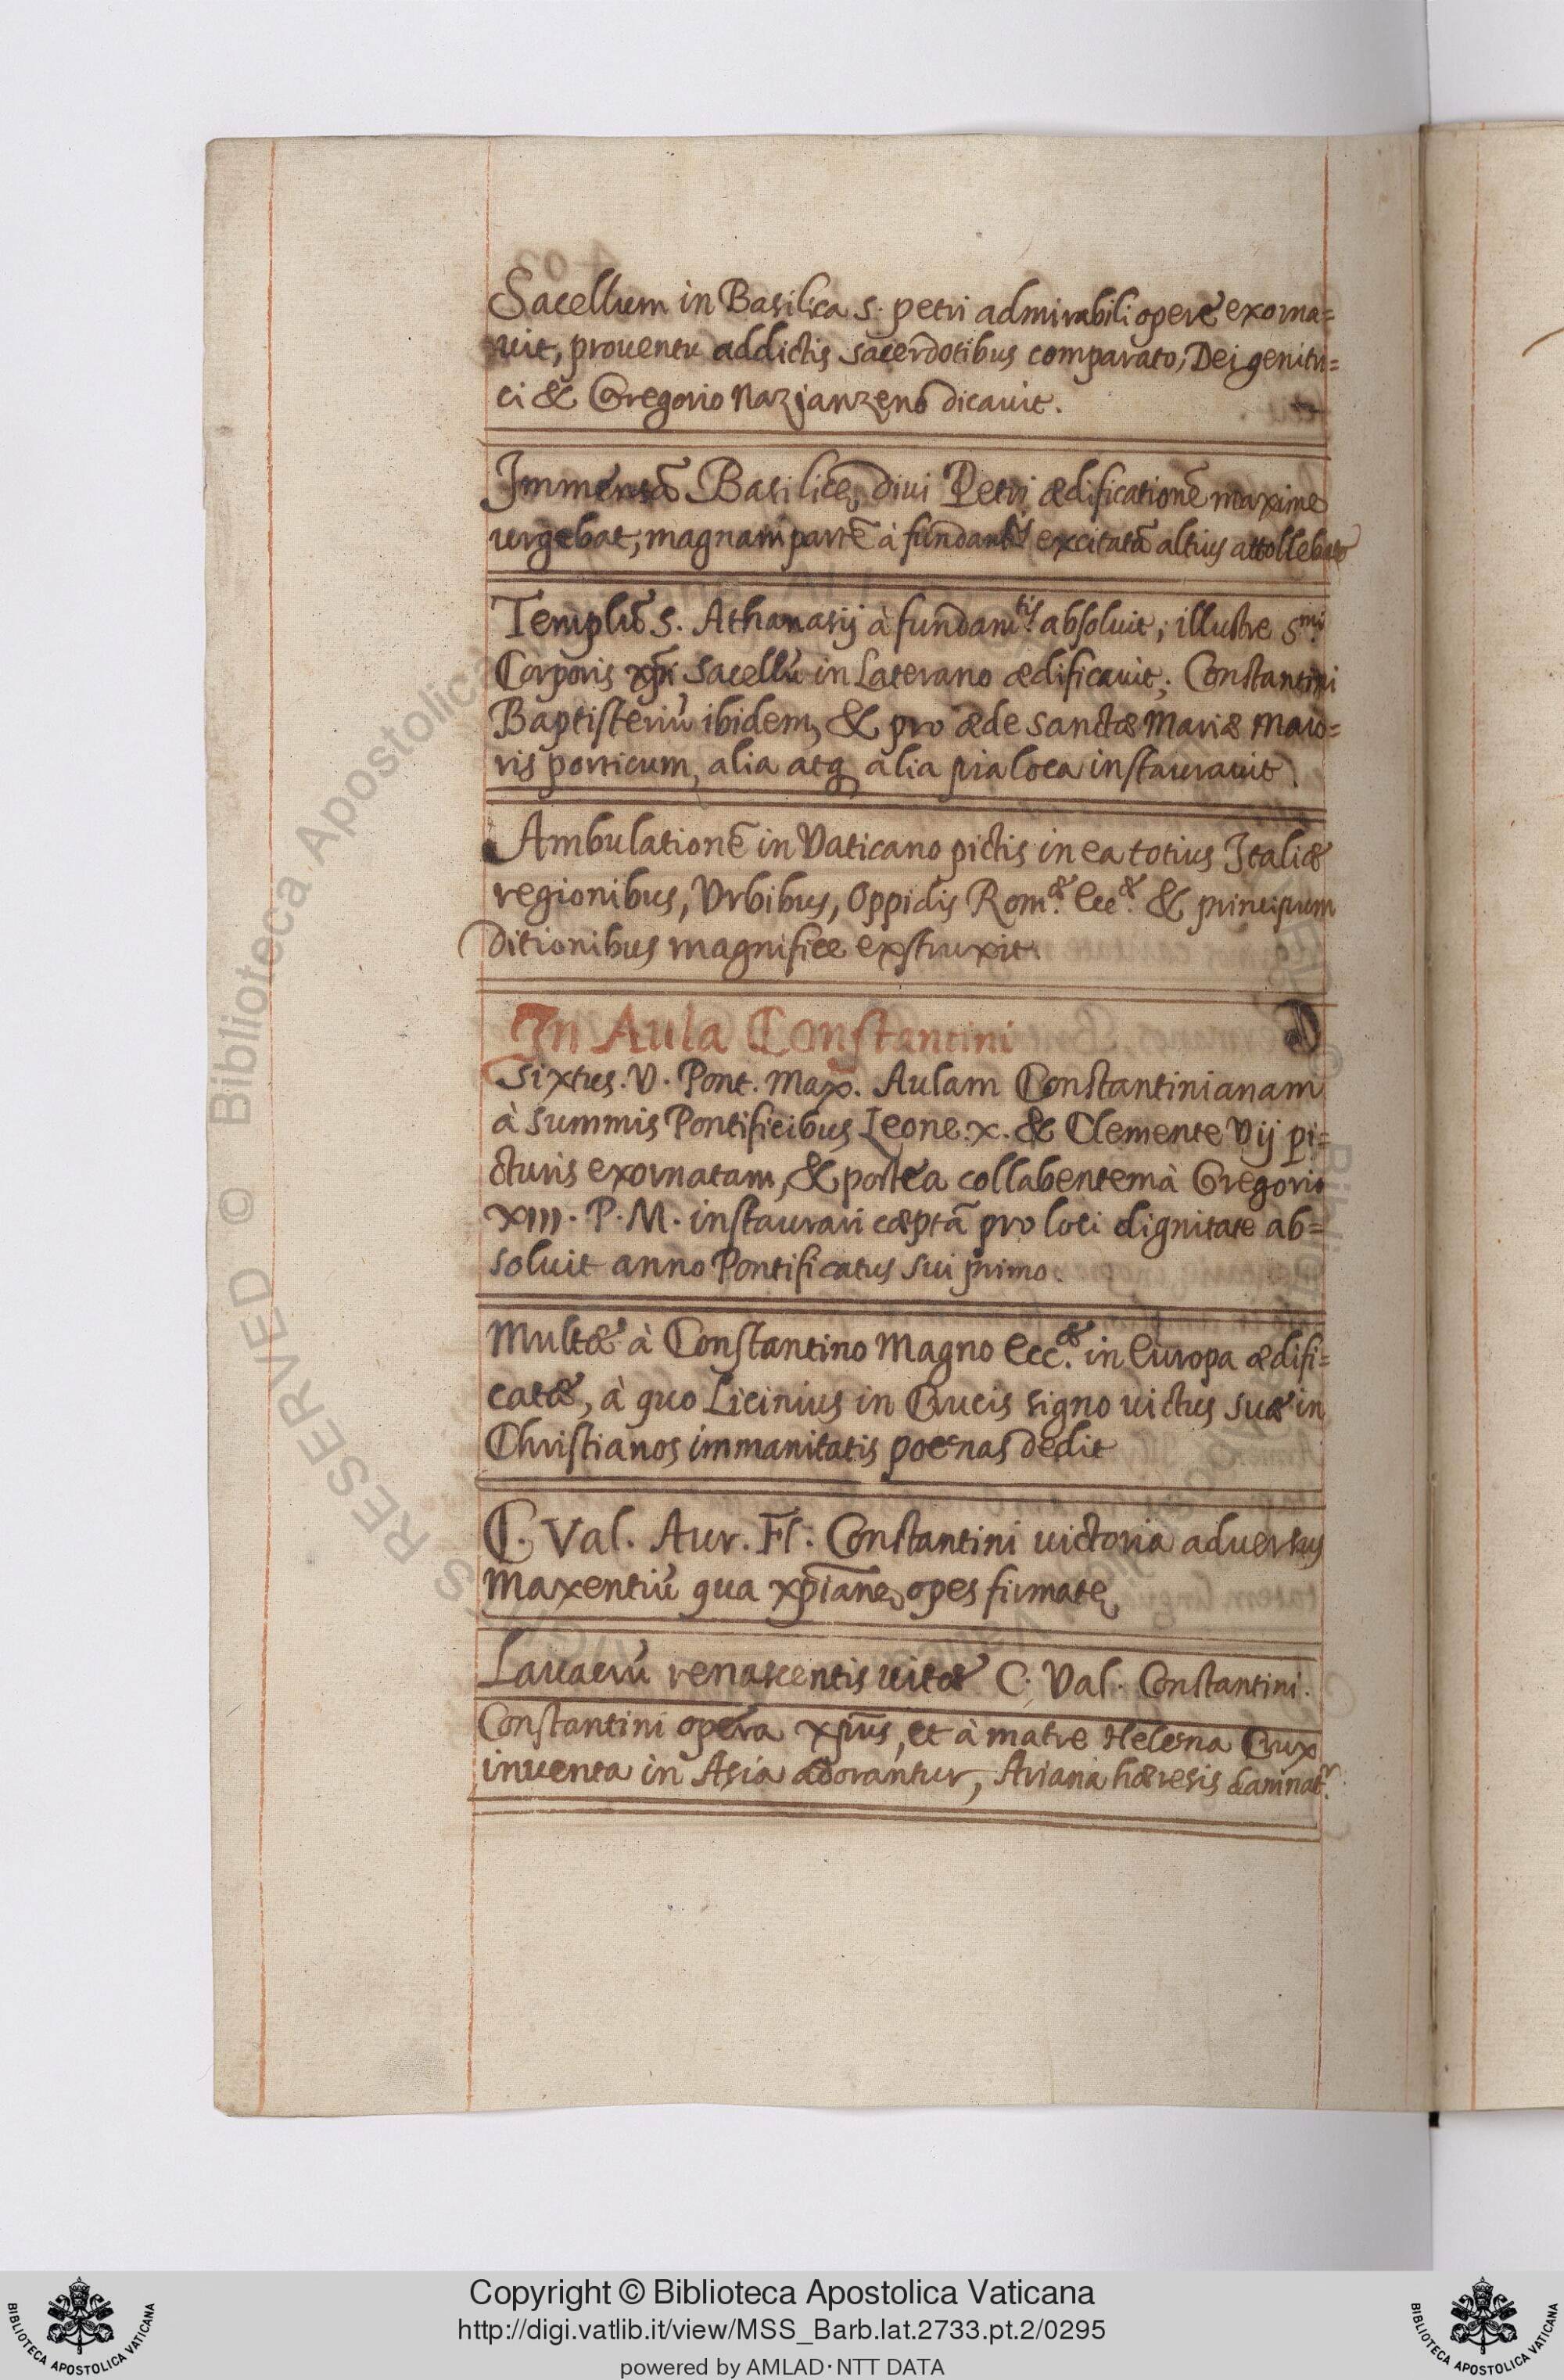 Sacellum in Basilica S. petri admirabili opere exorna=
uit, prouentu addictis sacerdotibus comparato, Dei genitri=
ci & Gregorio Nazianzeno dicauit.
Immensā Basilicę diui Petri ædificationē maxime
urgebat, magnam partē à fundamtis excitatā altius attollebat
Templū S. Athanasij à fundamtis. absoluit; illustre Smi.
Corporis xp̄i sacellū in Laterano ædificauit; Constantini
Baptisteriū ibidem, & pro æde sanctæ Mariæ Maio=
ris porticum, alia atq alia pia loca instaurauit
Ambulationē in Vaticano pictis in ea totius Italiæ
regionibus, Vrbibus, Oppidis Rom.æ Ecc.æ & principum
ditionibus magnifice exstruxit
In Aula Constantini
Sixtus. V. Pont. Max. Aulam Constantinianam
à summis Pontificibus Leone. x. & Clemente Vij pi=
cturis exornatam, & postea collabentem à Gregorio
XIII. P. M. instaurari cæptā pro loci dignitate ab=
soluit anno Pontificatus sui primo.
Multæ à Constantino Magno Ecc.æ in Europa ædifi=
catæ, à quo Licinius in Crucis signo uictus suæ in
Christianos immanitatis poenas dedit
C. Val. Aur. Fl. Constantini uictoria aduersus
Maxentiū qua xp̄ianę opes firmatę
Lauacrū renascentis uitæ C. Val. Constantini.
Constantini opera xp̄us, et à matre Helena Crux
inuenta in Asia adorantur, Ariana hæresis damnatr.
© Biblioteca Apostolica
RESERVED
Copyright © Biblioteca Apostolica Vaticana
http://digi.vatlib.it/view/MSS_Barb.lat.2733.pt.2/0295
powered by AMLAD·NTT DATA
BIBLIOTECA APOSTOLICA VATICANA
BIBLIOTECA APOSTOLICA VATICANA